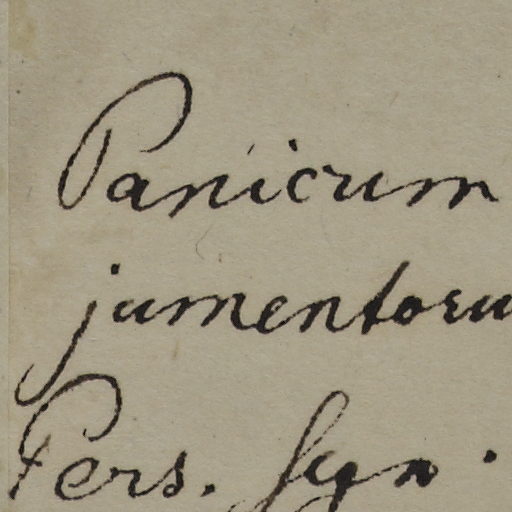 Panicum
jumentoru
Pers. Syn.